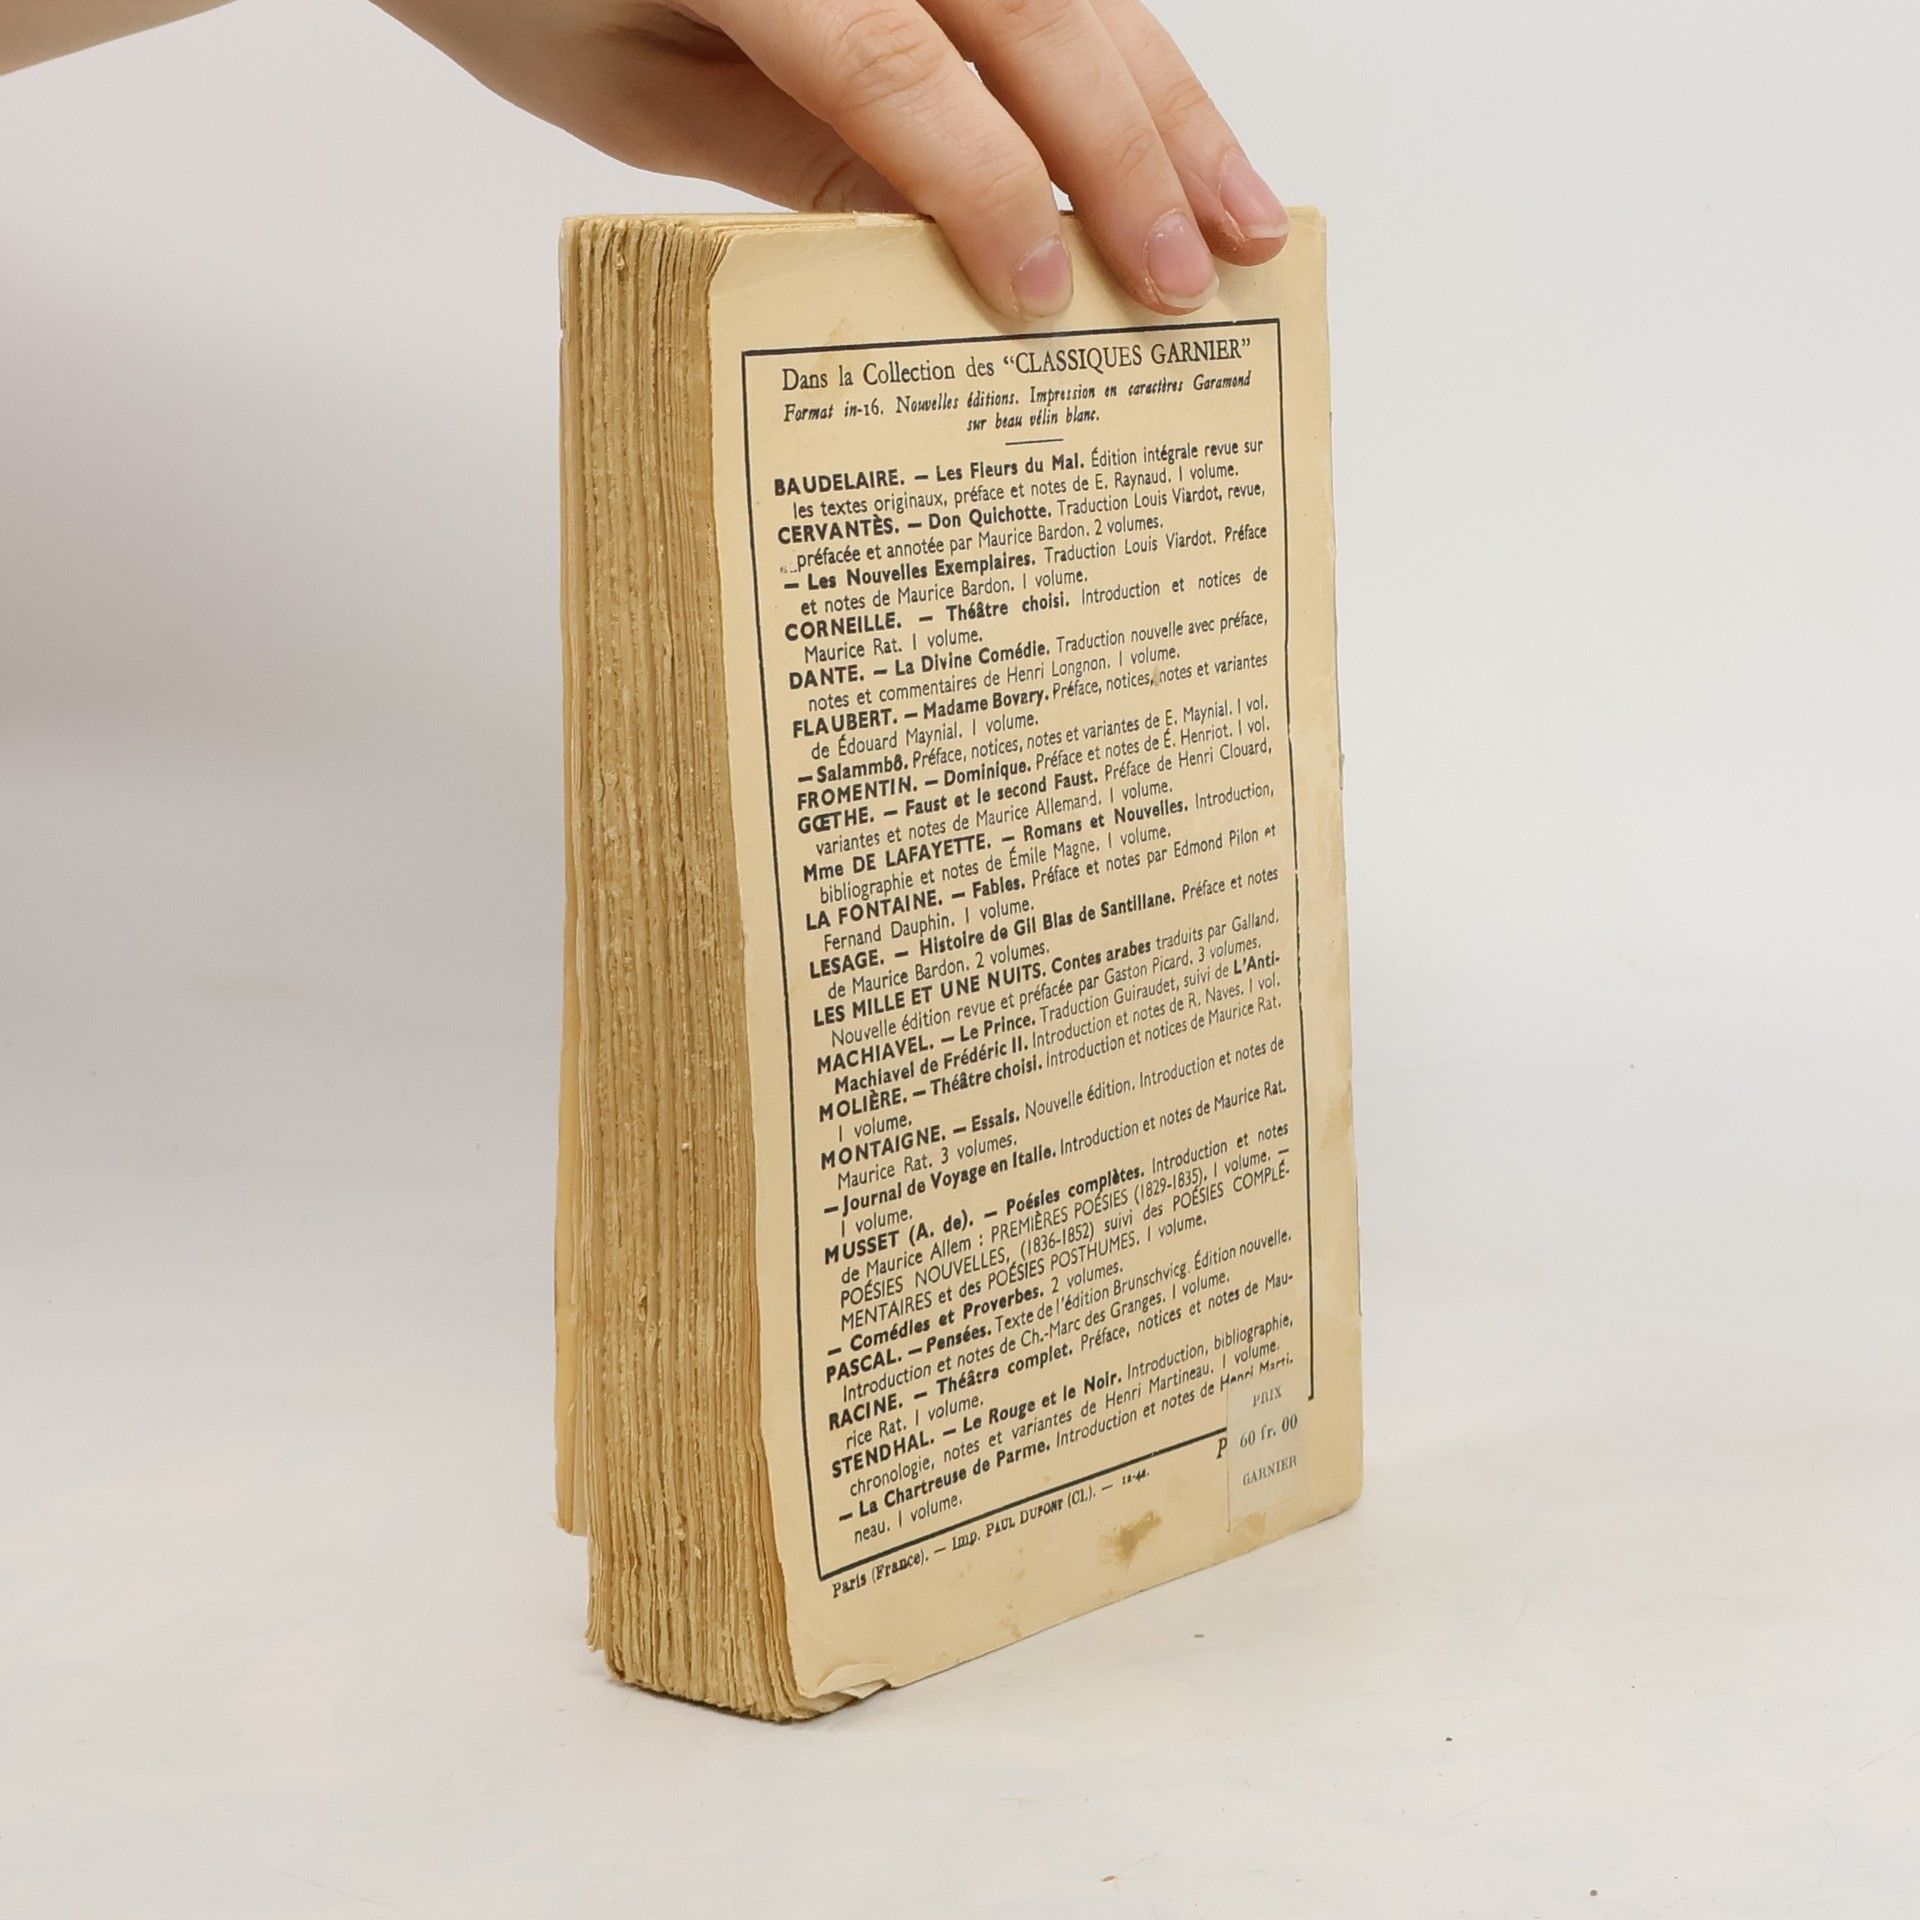 Dans la Collection des “CLASSIQUES GARNIER”
Format in-16. Nouvelles éditions. Impression en caractères Garamond
sur beau vélin blanc.
BAUDELAIRE. — Les Fleurs du Mal. Édition intégrale revue sur
les textes originaux, préface et notes de E. Raynaud. 1 volume.
CERVANTÈS. — Don Quichotte. Traduction Louis Viardot, revue,
préfacée et annotée par Maurice Bardon. 2 volumes.
— Les Nouvelles Exemplaires. Traduction Louis Viardot. Préface
et notes de Maurice Bardon. 1 volume.
CORNEILLE. — Théâtre choisi. Introduction et notices de
Maurice Rat. 1 volume.
DANTE. — La Divine Comédie. Traduction nouvelle avec préface,
notes et commentaires de Henri Longnon. 1 volume.
FLAUBERT. — Madame Bovary. Préface, notices, notes et variantes
de Édouard Maynial. 1 volume.
— Salammbô. Préface, notices, notes et variantes de E. Maynial. 1 vol.
FROMENTIN. — Dominique. Préface et notes de É. Henriot. 1 vol.
GŒTHE. — Faust et le second Faust. Préface de Henri Clouard,
variantes et notes de Maurice Allemand. 1 volume.
Mme DE LAFAYETTE. — Romans et Nouvelles. Introduction,
bibliographie et notes de Émile Magne. 1 volume.
LA FONTAINE. — Fables. Préface et notes par Edmond Pilon et
Fernand Dauphin. 1 volume.
LESAGE. — Histoire de Gil Blas de Santillane. Préface et notes
de Maurice Bardon. 2 volumes.
LES MILLE ET UNE NUITS. Contes arabes traduits par Galland.
Nouvelle édition revue et préfacée par Gaston Picard. 3 volumes.
MACHIAVEL. — Le Prince. Traduction Guiraudet, suivi de L'Anti-
Machiavel de Frédéric II. Introduction et notes de R. Naves. 1 vol.
MOLIÈRE. — Théâtre choisi. Introduction et notices de Maurice Rat.
1 volume.
MONTAIGNE. — Essais. Nouvelle édition. Introduction et notes de
Maurice Rat. 3 volumes.
— Journal de Voyage en Italie. Introduction et notes de Maurice Rat.
1 volume.
MUSSET (A. de). — Poésies complètes. Introduction et notes
de Maurice Allem : PREMIÈRES POÉSIES (1829-1835), 1 volume. —
POÉSIES NOUVELLES, (1836-1852) suivi des POÉSIES COMPLÉ-
MENTAIRES et des POÉSIES POSTHUMES. 1 volume.
— Comédies et Proverbes. 2 volumes.
PASCAL. — Pensées. Texte de l'édition Brunschvicg. Édition nouvelle.
Introduction et notes de Ch.-Marc des Granges. 1 volume.
RACINE. — Théâtre complet. Préface, notices et notes de Mau-
rice Rat. 1 volume.
STENDHAL. — Le Rouge et le Noir. Introduction, bibliographie,
chronologie, notes et variantes de Henri Martineau. 1 volume.
— La Chartreuse de Parme. Introduction et notes de Henri Marti-
neau. 1 volume.
P
PRIX
60 fr. 00
GARNIER
Paris (France). — Imp. PAUL DUPONT (Cl.). — 12-48.